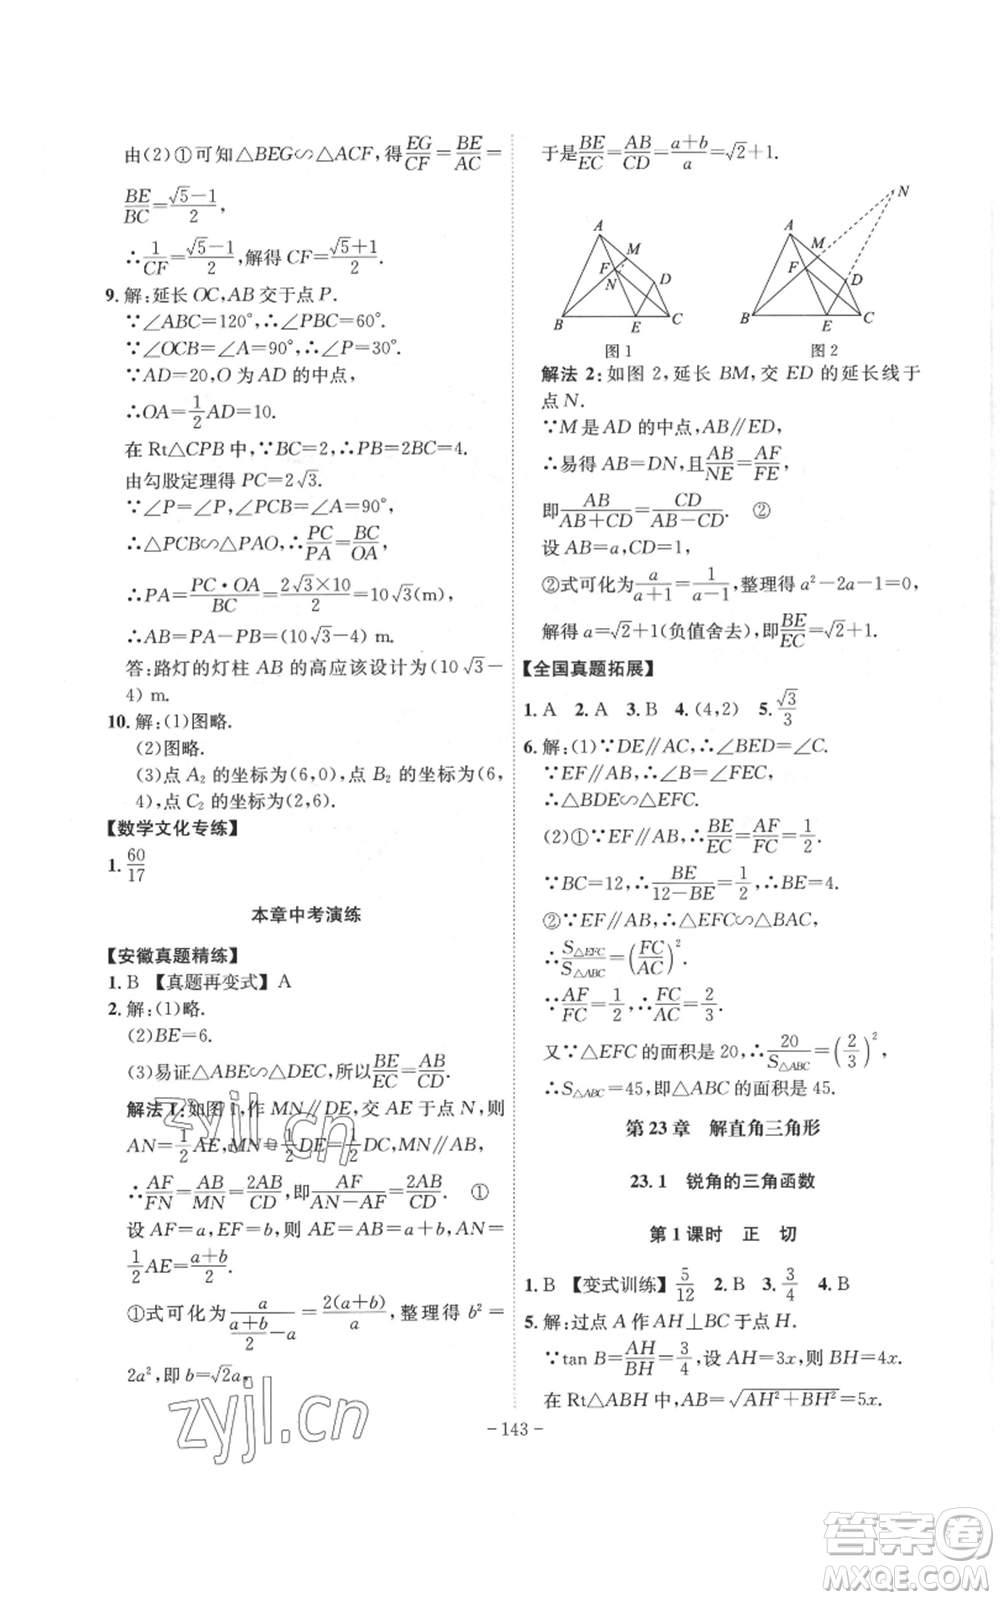 由(2)①可知△BEG∽△ACF,得EG/CF=BE/AC=
BE/BC=(√5-1)/2,
∴1/CF=(√5-1)/2,解得 CF=(√5+1)/2.
9. 解:延长 OC,AB 交于点 P.
∵∠ABC=120°,∴∠PBC=60°.
∵∠OCB=∠A=90°,∴∠P=30°.
∵AD=20,O 为 AD 的中点,
∴OA=1/2AD=10.
在 Rt△CPB 中,∵BC=2,∴PB=2BC=4.
由勾股定理得 PC=2√3.
∵∠P=∠P,∠PCB=∠A=90°,
∴△PCB∽△PAO,∴PC/PA=BC/OA,
∴PA=PC·OA/BC=2√3×10/2=10√3(m),
∴AB=PA-PB=(10√3-4) m.
答:路灯的灯柱 AB 的高应该设计为(10√3-
4) m.
10. 解:(1)图略.
(2)图略.
(3)点 A₂ 的坐标为(6,0),点 B₂ 的坐标为(6,
4),点 C₂ 的坐标为(2,6).
【数学文化专练】
1. 60/17
本章中考演练
【安徽真题精练】
1. B 【真题再变式】A
2. 解:(1)略.
(2)BE=6.
(3)易证△ABE∽△DEC,所以BE/EC=AB/CD.
解法 1:如图 1,作 MN∥DE,交 AE 于点 N,则
AN=1/2AE,MN=1/2DE=1/2CD,MN∥AB,
∴AF/FN=AB/MN=2AB/CD,即AF/(AN-AF)=2AB/CD. ①
设 AF=a,EF=b,则 AE=AB=a+b,AN=
1/2AE=(a+b)/2.
①式可化为a/((a+b)/2-a)=2(a+b)/a,整理得 b²=
2a²,即 b=√2a,
于是BE/EC=AB/CD=(a+b)/a=√2+1.
A
M
F
N
D
B
E
C
图 1
N
A
M
F
D
B
E
C
图 2
解法 2:如图 2,延长 BM,交 ED 的延长线于
点 N.
∵M 是 AD 的中点,AB∥ED,
∴易得 AB=DN,且AB/NE=AF/FE,
即AB/(AB+CD)=CD/(AB-CD). ②
设 AB=a,CD=1,
②式可化为a/(a+1)=1/(a-1),整理得 a²-2a-1=0,
解得 a=√2+1(负值舍去),即BE/EC=√2+1.
【全国真题拓展】
1. A 2. A 3. B 4. (4,2) 5. √3/3
6. 解:(1)∵DE∥AC,∴∠BED=∠C.
∵EF∥AB,∴∠B=∠FEC,
∴△BDE∽△EFC.
(2)①∵EF∥AB,∴BE/EC=AF/FC=1/2.
∵BC=12,∴BE/(12-BE)=1/2,∴BE=4.
②∵EF∥AB,∴△EFC∽△BAC,
∴S△EFC/S△ABC=(FC/AC)².
∵AF/FC=1/2,∴FC/AC=2/3.
又∵△EFC 的面积是 20,∴20/S△ABC=(2/3)²,
∴S△ABC=45,即△ABC 的面积是 45.
第 23 章 解直角三角形
23.1 锐角的三角函数
第 1 课时 正 切
1. B 【变式训练】5/12 2. B 3. 3/4 4. B
5. 解:过点 A 作 AH⊥BC 于点 H.
∵tan B=AH/BH=3/4,设 AH=3x,则 BH=4x.
在 Rt△ABH 中,AB=√(AH²+BH²)=5x.
- 143 -
zyjl.cn
zyjl.cn
答案圈
MXQE.COM